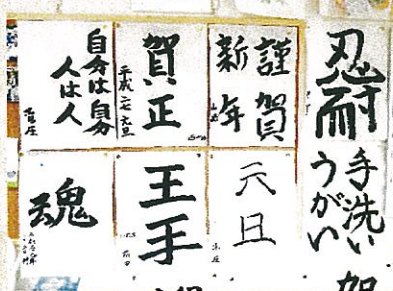 忍耐
手洗い
うがい
謹賀
新年
賀正
平成二七 元旦
自分は自分
人は人
元旦
王手
魂